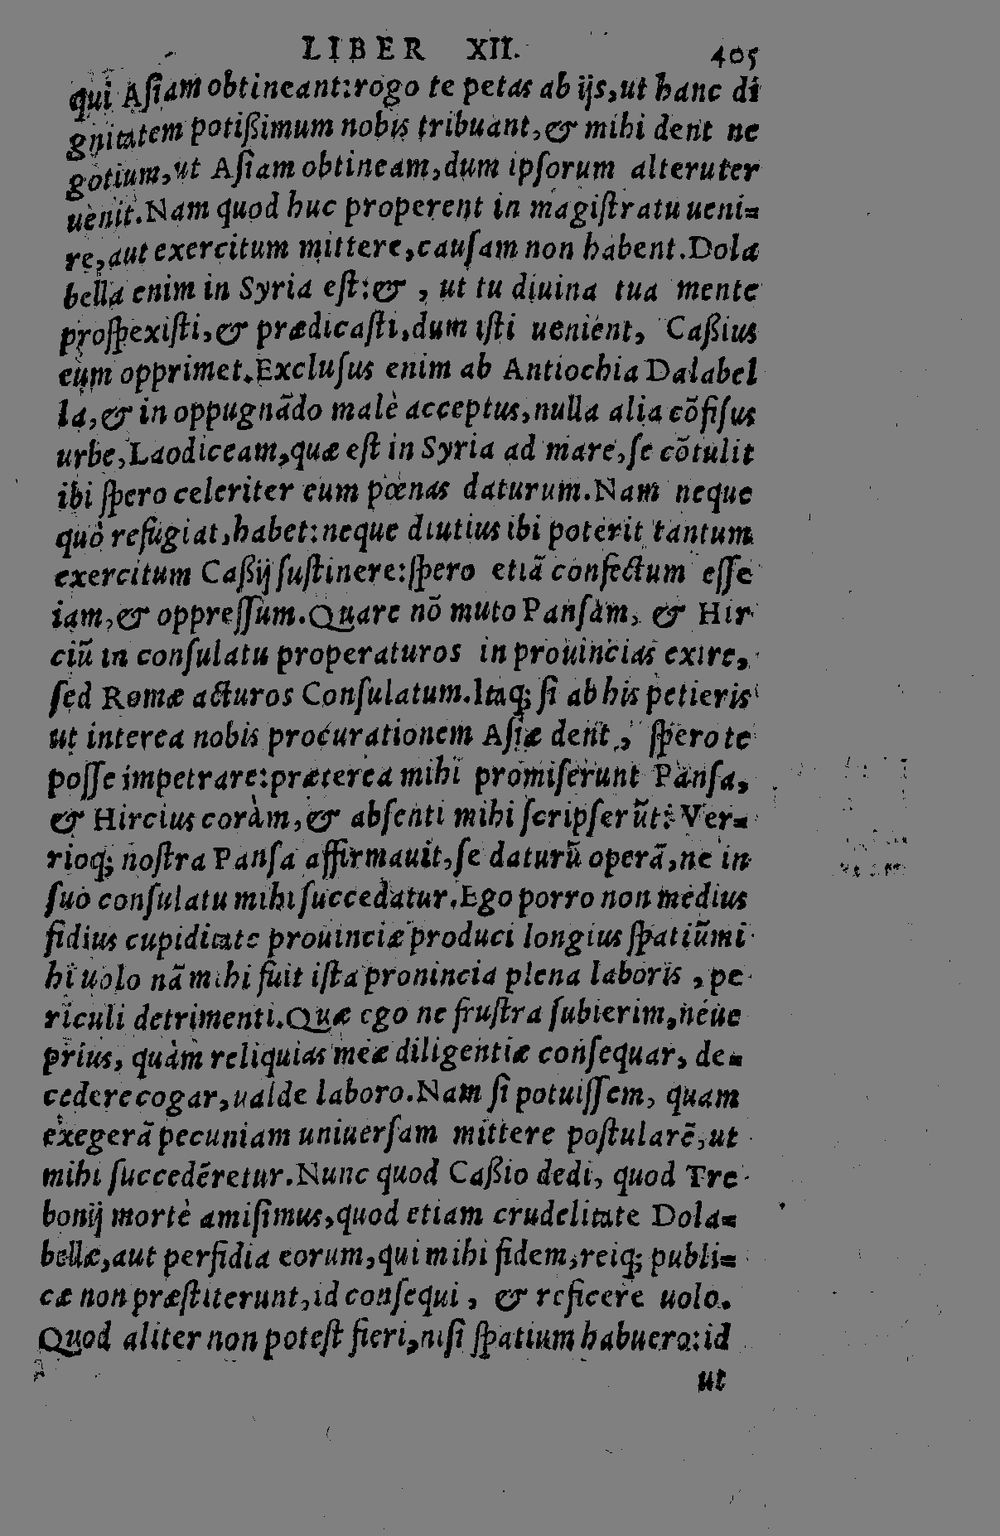 LIBER XII. 405
qui Aſiam obtineant: rogo te petas ab ijs, ut hanc di
gnitatem potißimum nobis tribuant, & mihi dent ne
gotium, ut Aſiam obtineam, dum ipſorum alteruter
uenit. Nam quod huc properent in magiſtratu ueni=
re, aut exercitum mittere, cauſam non habent. Dola
bella enim in Syria eſt: & , ut tu diuina tua mente
proſpexiſti, & prædicaſti, dum iſti uenient, Caßius
eum opprimet. Excluſus enim ab Antiochia Dalabel
la, & in oppugnādo malè acceptus, nulla alia cōfiſus
urbe, Laodiceam, quæ eſt in Syria ad mare, ſe cōtulit
ibi ſpero celeriter eum pœnas daturum. Nam neque
quò refugiat, habet: neque diutius ibi poterit tantum
exercitum Caßij ſuſtinere: ſpero etiā confectum eſſe
iam, & oppreſſum. Quare nō muto Panſam, & Hir
ciū in conſulatu properaturos in prouincias exire,
ſed Romæ acturos Conſulatum. Itaq; ſi ab his petieris
ut interea nobis procurationem Aſiæ dent, ſpero te
poſſe impetrare: præterea mihi promiſerunt Panſa,
& Hircius coràm, & abſenti mihi ſcripſerūt: Ver=
rioq; noſtra Panſa affirmauit, ſe daturū operā, ne in
ſuo conſulatu mihi ſuccedatur. Ego porro non medius
fidius cupiditate prouinciæ produci longius ſpatiū mi
hi uolo nā mihi fuit iſta pronincia plena laboris , pe
riculi detrimenti. Quæ ego ne fruſtra ſubierim, neue
prius, quàm reliquias meæ diligentiæ conſequar, de=
cedere cogar, ualde laboro. Nam ſi potuiſſem, quam
exegerā pecuniam uniuerſam mittere poſtularē, ut
mihi ſuccedēretur. Nunc quod Caßio dedi, quod Tre
bonij mortè amiſimus, quod etiam crudelitate Dola=
bellæ, aut perfidia eorum, qui mihi fidem, reiq; publi=
cæ non præſtiterunt, id conſequi , & reficere uolo.
Quod aliter non poteſt fieri, niſi ſpatium habuero: id
ut